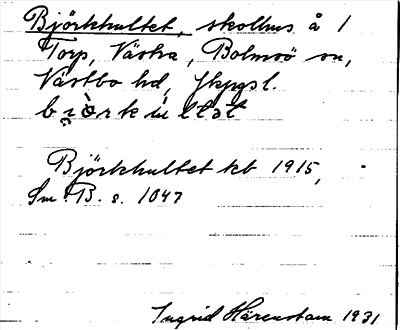 Björkhultet, skolhus å 1
Torp, Västra, Bolmsö sn,
Västbo hd, Jkpgs l.
bjòrkùltət
Björkhultet kb 1915,
Sm. B. s. 1047
Ingrid Härenstam 1931